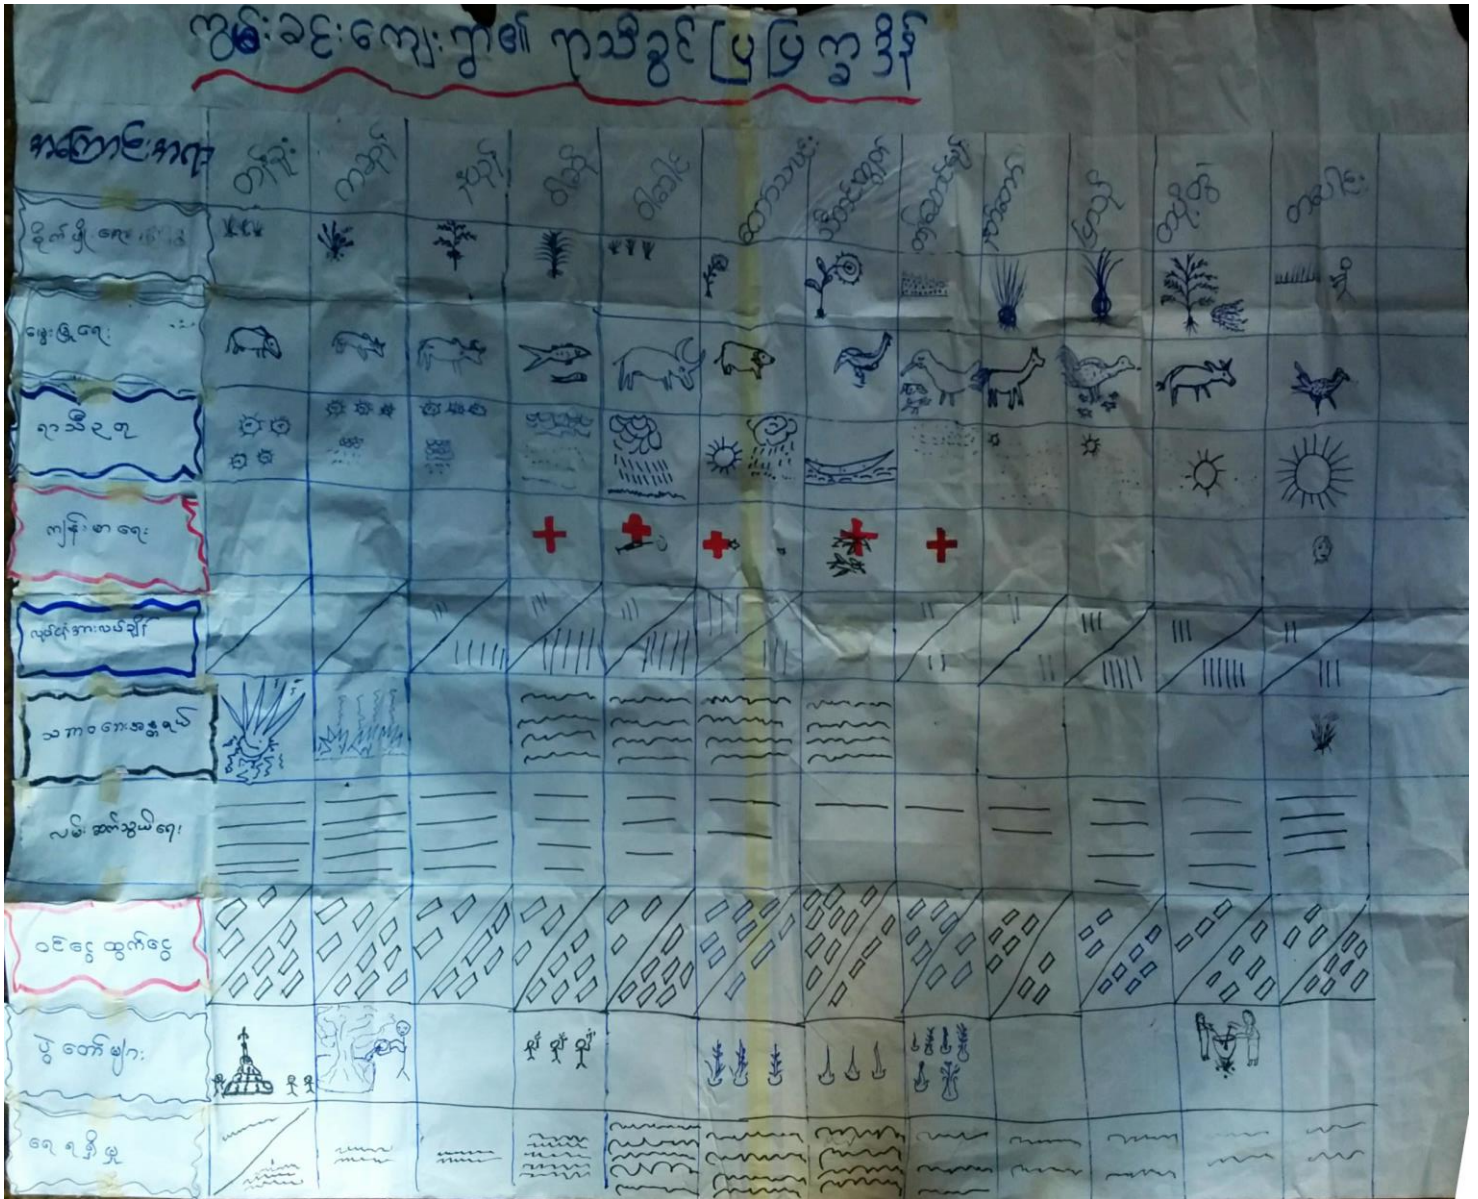 ကွမ်းခင်းကျေးရွာ၏ ရာသီခွင်ပြပြက္ခဒိန်
အကြောင်းအရာ တန်ခူး ကဆုန် နယုန် ဝါဆို ဝါခေါင် တော်သလင်း သီတင်းကျွတ် တန်ဆောင်မုန်း နတ်တော် ပြာသို တပို့တွဲ တပေါင်း
စိုက်ပျိုးရေး
မွေးမြူရေး
ရာသီဥတု
ကျန်းမာရေး
သဘာဝဘေးအန္တရာယ်
လမ်းဆက်သွယ်ရေး
ဝင်ငွေ ထွက်ငွေ
ပွဲတော်များ
ရေရရှိမှု